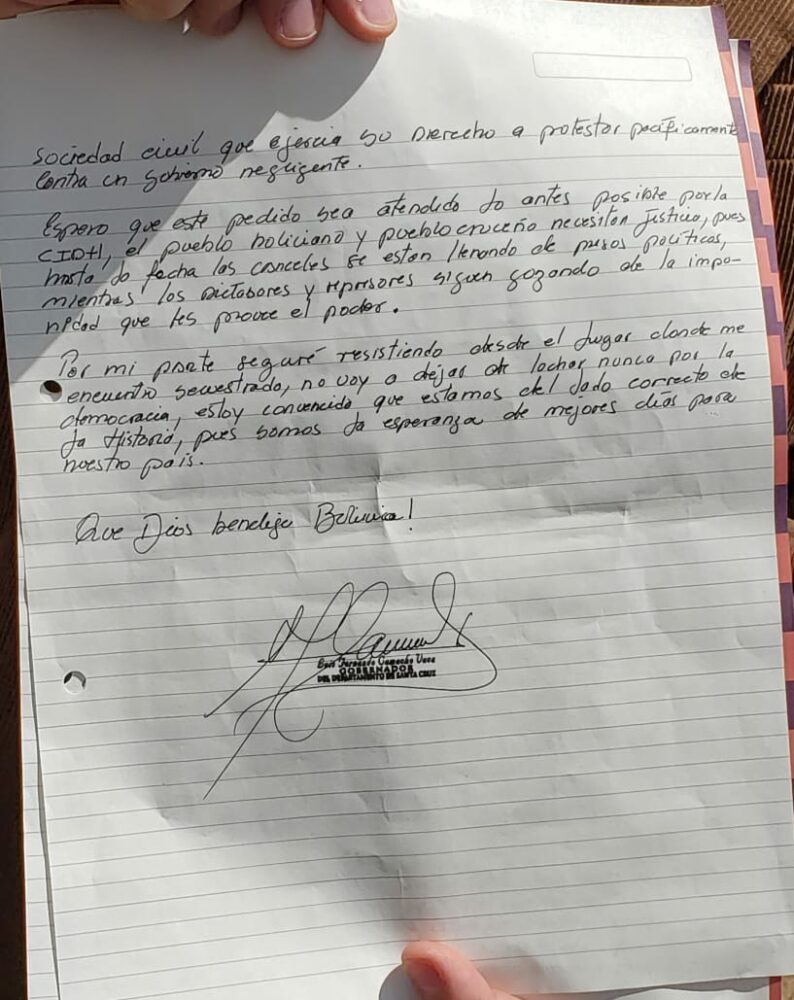 Sociedad civil que ejercia su Derecho a protestar pacíficamente
contra un gobierno negligente.
Espero que este pedido sea atendido lo antes posible por la
CIDH, el pueblo boliviano y pueblo cruceño necesitan justicia, pues
hasta la fecha las carceles se estan llenando de presos políticos,
mientras los Dictadores y represores siguen gozando de la impu-
nidad que les provee el poder.
Por mi parte seguiré resistiendo desde el lugar donde me
encuentro secuestrado, no voy a dejar de luchar nunca por la
democracia, estoy convencido que estamos del lado correcto de
la Historia, pues somos la esperanza de mejores días para
nuestro país.
Que Dios bendiga Bolivia!
Luis Fernando Camacho Vaca
GOBERNADOR
DEL DEPARTAMENTO DE SANTA CRUZ